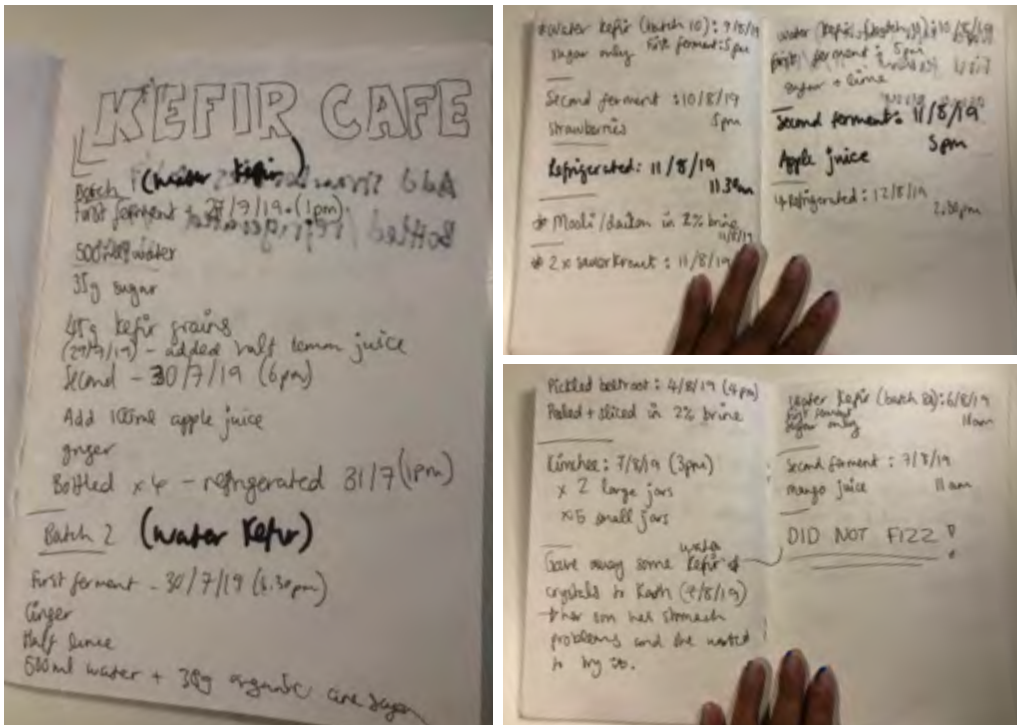 KEFIR CAFE
Batch 1 (water kefir)
First ferment - 29/7/19 (1pm)
500ml water
35g sugar
45g kefir grains
(29/7/19) - added half lemon juice
Second - 30/7/19 (6pm)
Add 100ml apple juice
ginger
Bottled x 4 - refrigerated 31/7 (1pm)
Batch 2 (water kefir)
First ferment - 30/7/19 (6.30pm)
Ginger
Half lime
500ml water + 30g organic cane sugar
*Water Kefir (batch 10): 9/8/19
sugar only First ferment: 5pm
Second ferment: 10/8/19
Strawberries 5pm
Refrigerated: 11/8/19
11.30am
* Mooli/daikon in 2% brine
11/8/19
* 2 x sauerkraut: 11/8/19
water Kefir 10/8/19
First ferment: 5pm
sugar + lime
Second ferment: 11/8/19
5pm
Apple juice
Refrigerated: 12/8/19
2.30pm
Pickled beetroot: 4/8/19 (4pm)
Peeled + sliced in 2% brine
Kimchee: 7/8/19 (3pm)
x 2 large jars
x 5 small jars
Gave away some water Kefir
crystals to Kath /8/19)
her son has stomach
problems and he wanted
to try it.
water Kefir (batch 8a): 6/8/19
First ferment 11am
sugar only
Second ferment: 7/8/19
mango juice 11am
DID NOT FIZZ !